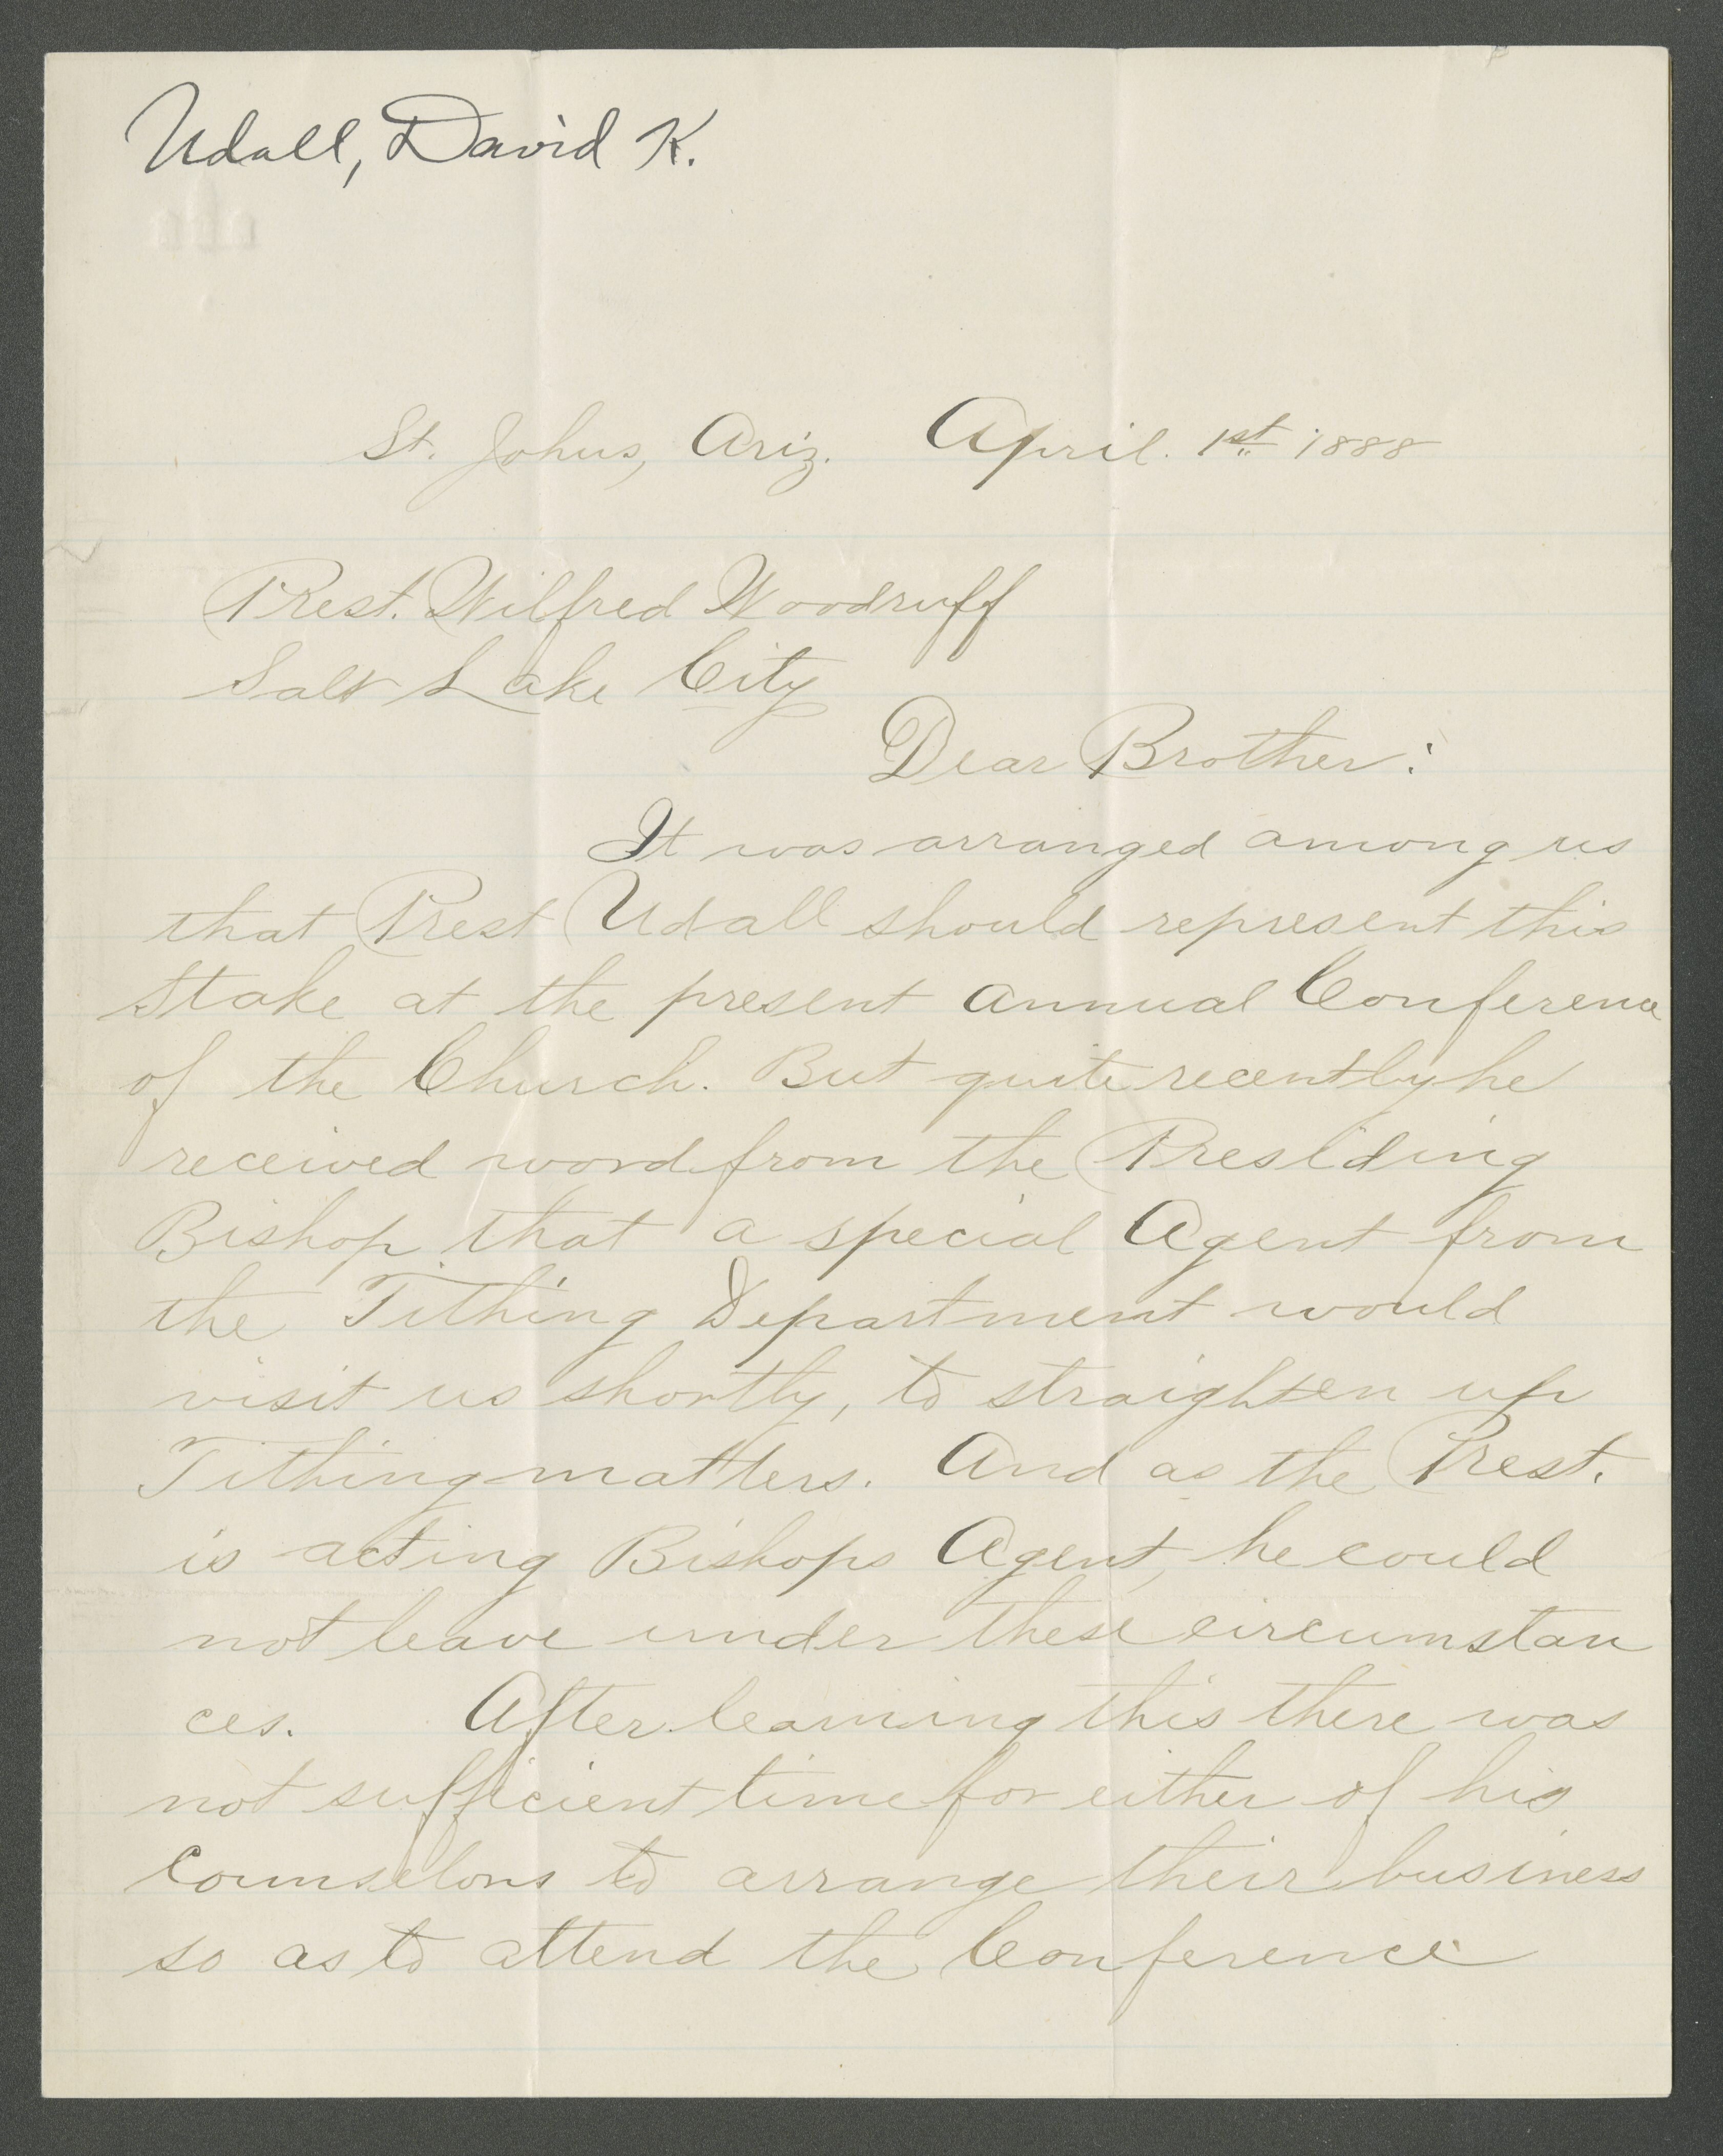 Udall, David K.
St. Johns, Ariz. April. 1st 1888
Prest. Wilfred Woodruff
Salt Lake City
Dear Brother:
It was arranged among us
that Prest Udall should represent this
Stake at the present annual Conference
of the Church. But quite recently he
received word from the Presiding
Bishop that a special Agent from
the Tithing Department would
visit us shortly, to straighten up
Tithing matters. And as the Prest.
is acting Bishops Agent, he could
not leave under these circumstan
ces. After learning this there was
not sufficient time for either of his
Counselors to arrange their business
so as to attend the Conference